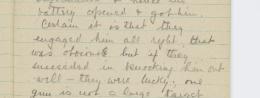 battery opened & got him.
Certain it is that they
engaged him all right, that
was obvious but if they
succeeded in knocking him out
well - they were lucky, one
gun is not a large target